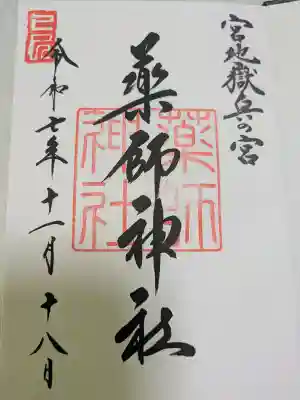 宮地嶽兵の宮
薬師神社
薬師
神社
令和七年十一月十八日